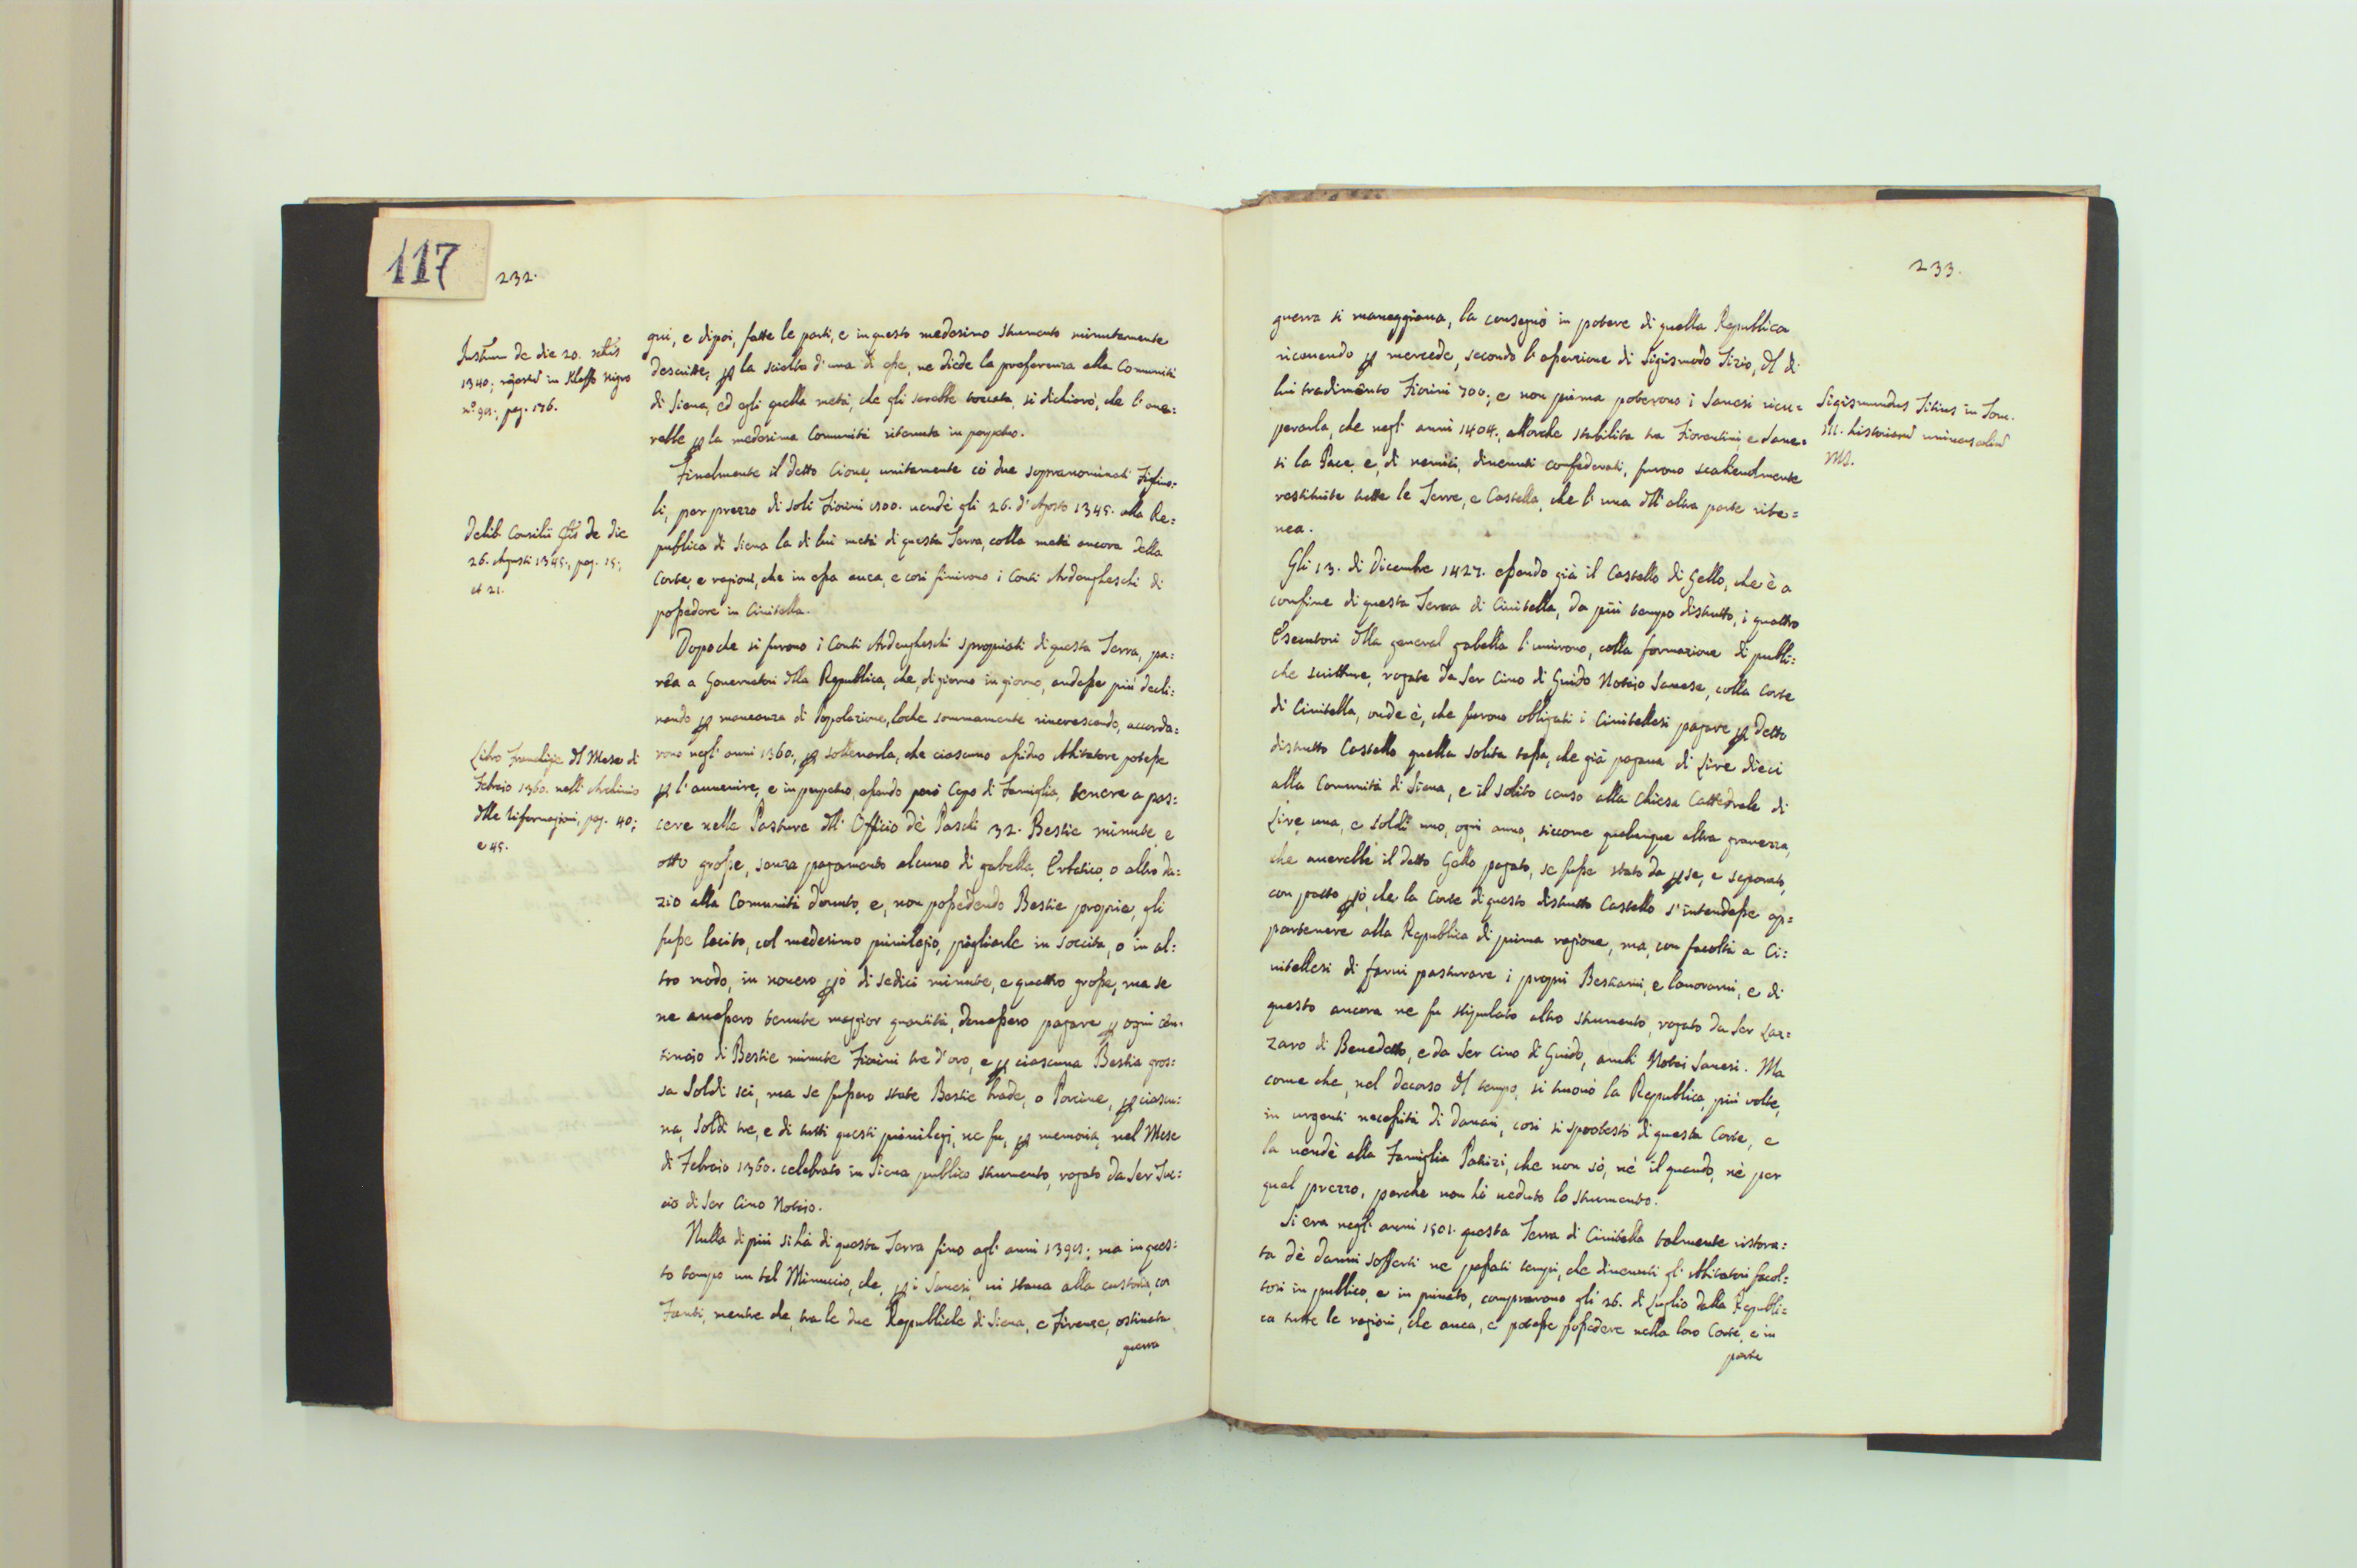 117
232.
Instrum de die 20. 
1340; in Kleffo nigro
nº. 91.; pag. 176.
gni, e dipoi, fatte le parti, e in questo medesimo strumento minutamente
descritte, p la scielta d'una di esse, ne diede la preferenza alla Comunità
di Siena, ed egli quella metà, che gli sarebbe toccata, si dichiarò, che l'aue=
rebbe p la medesima Comunità ritenuta in perpetuo.
Finalmente il detto Cione, unitamente có due sopranominati Figliuo=
li, per prezzo di soli Fiorini 1500. uendè gli 26. d'Agosto 1345. alla Re=
publica di Siena la di lui metà di questa Terra, colla metà ancora della
Corte, e ragioni, che in essa auea, e così finirono i Conti Ardengheschi di
possedere in Ciuitella.
Delib. Consilii de die
26. Augusti 1345., pag. 15.,
et 21.
Dopo che si furono i Conti Ardengheschi spropriati di questa Terra, pa=
rêa a Gouernatori dlla Republica, che, di giorno in giorno, andasse più decli=
nando p mancanza di Popolazione, loche sommamente rincrescendo, accorda=
rono negl'anni 1360., p solleuarla, che ciascuno assiduo Abitatore potesse
p l'auuenire, e in perpetuo, essendo però Capo di Famiglia, tenere a pas=
cere nelle Pasture dll'Officio dè Paschi 32. Bestie minute, e
otto grosse, senza pagamento alcuno di gabella, Erbatico, o altro da=
zio alla Comunità douuto, e, non possedendo Bestie proprie, gli
fusse lecito, col medesimo priuilegio, pigliarle in soccita, o in al=
tro modo, in nouero pò di sedici minute, e quattro grosse, ma se
ne auessero tenute maggior quantità, douessero pagare p ogni cên=
tinaio di Bestie minute Fiorini tre d'oro, e p ciascuna Bestia gros=
sa Soldi sei, ma se fussero state Bestie brade, o Porcine, p ciascu=
na, Soldi tre, e di tutti questi priuilegi, ne fu, p memoria, nel Mese
di Febraio 1360. celebrato in Siena publico strumento, rogato da Ser Tuc=
cio di Ser Cino Notaio.
Libro dl Mese di
Febraio 1360. nell'Archiuio
dlle Riformagioni, pag. 40;
e 45.
Nulla di più si hà di questa Terra fino agl'anni 1391.; ma in ques=
to tempo un tal Minuccio, che, p i Sanesi, ui staua alla custodia, con
Fanti, mentre che, tra le due Republiche di Siena, e Firenze, ostinata
guerra
233.
guerra si maneggiaua, la consegnò in potere di quella Republica
riceuendo p mercede, secondo l'asserzione di Sigismôdo Tizio, dl di
lui tradimênto Fiorini 700., e non prima poterono i Sanesi ricu=
perarla, che negl'anni 1404., allorche stabilita tra Fiorentini, e Sane=
si la Pace, e, di nemici, diuenuti confederati, furono scabieuolmente
restituite tutte le Terre, e Castella, che l'una dll'altra parte rite=
nea.
Sigismundus Titius in Tom.
III. historiarũ uniuersaliũ
MS.
Gli 13. di Dicembre 1427. essendo già il Castello di Gello, che è a
confine di questa Terra di Ciuitella, da più tempo distrutto, i quattro
Esecutori dlla general gabella l'unirono, colla formazione di publi=
che scritture, rogate da Ser Cino di Guido Notaio Sanese, colla Corte
di Ciuitella, onde è, che furono obligati i Ciuitellesi pagare p detto
distrutto Castello quella solita tassa, che già pagaua di Lire dieci
alla Comunità di Siena, e il solito censo alla Chiesa Cattedrale di
Lire una, e Soldi uno, ogni anno, siccome qualunque altra grauezza,
che auerebbe il detto Gello pagato, se fusse stato da p se, e separato,
con patto pò, che la Corte di questo distrutto Castello s'intendesse ap=
partenere alla Republica di prima ragione, ma, con facoltà a Ci=
uitellesi di farui pasturare i propri Bestiami, e lauorarui, e di
questo ancora ne fu stipulato altro strumento, rogato da Ser Laz=
zaro di Benedetto, e da Ser Cino di Guido, ambi Notai Sanesi. Ma
come che, nel decorso dl tempo, si truouò la Republica, più volte,
in urgenti necessità di danari, così si spodestò di questa Corte, e
la uendè alla Famiglia Patrizi, che non sò, nè il quando, nè per
qual prezzo, perche non hò ueduto lo strumento.
Si era negl'anni 1501. questa Terra di Ciuitella talmente ristora=
ta dè danni sofferti ne passati tempi, che diuenuti gl'Abitatori facol=
tosi in publico, e in priuato, comprarono gli 26. di Luglio dalla Republi=
ca tutte le ragioni, che auea, e potesse possedere nella loro Corte, e in
parte